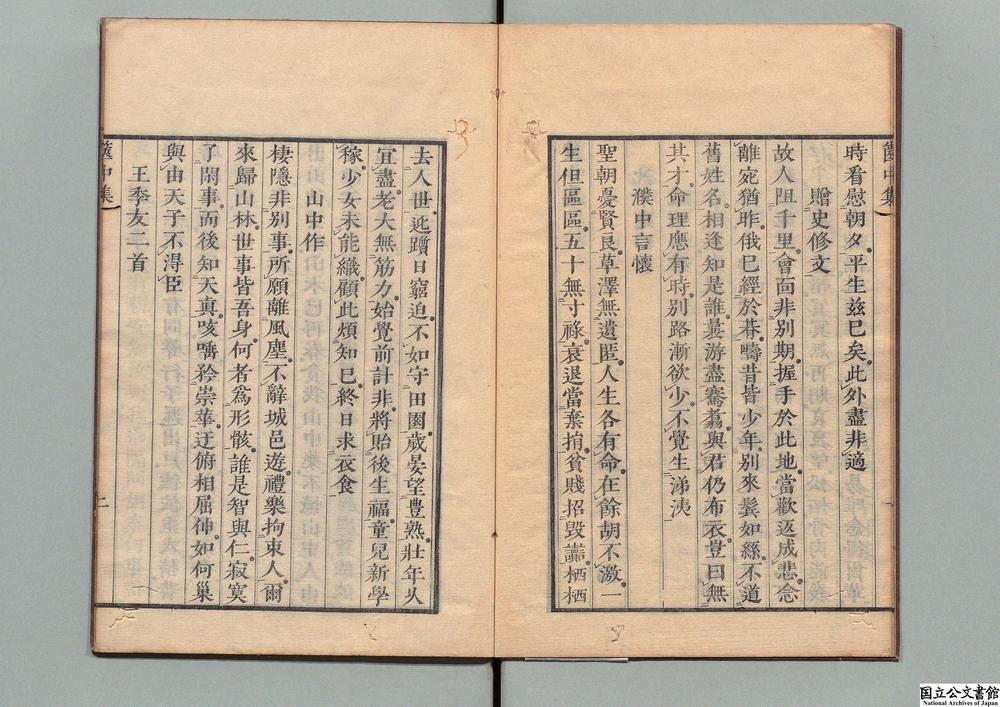 篋中集
時看慰朝夕。平生茲已矣。此外盡非適
贈史修文
故人阻千里。會面非別期。握手於此地。當歡返成悲。念
離宛猶昨。俄已經於朞。疇昔皆少年。別來鬂如絲。不道
舊姓名。相逢知是誰。曩游盡騫翥。與君仍布衣。豈曰無
其才。命理應有時。別路漸欲少。不覺生涕洟
濮中言懷
聖朝憂賢良。草澤無遺匿。人生各有命。在餘胡不激。一
生但區區。五十無寸祿。衰退當棄捐。貧賤招毀讟。栖栖
一
去人世。迍躓日窮迫。不如守田園。歲晏望豊熟。壯年失
宜盡。老大無筋力。始覺前計非。將貽後生福。童兒新學
稼。少女未能織。顧此煩知已。終日求衣食
山中作
棲隱非別事。所願離風塵。不辭城邑遊。禮樂拘束人。爾
來歸山林。世事皆吾身。何者爲形骸。誰是智與仁。寂寞
了閑事。而後知天真。咳唾矜崇華。迂俯相屈伸。如何巢
與由。天子不得臣
王季友二首
篋中集
二
国立公文書館
National Archives of Japan